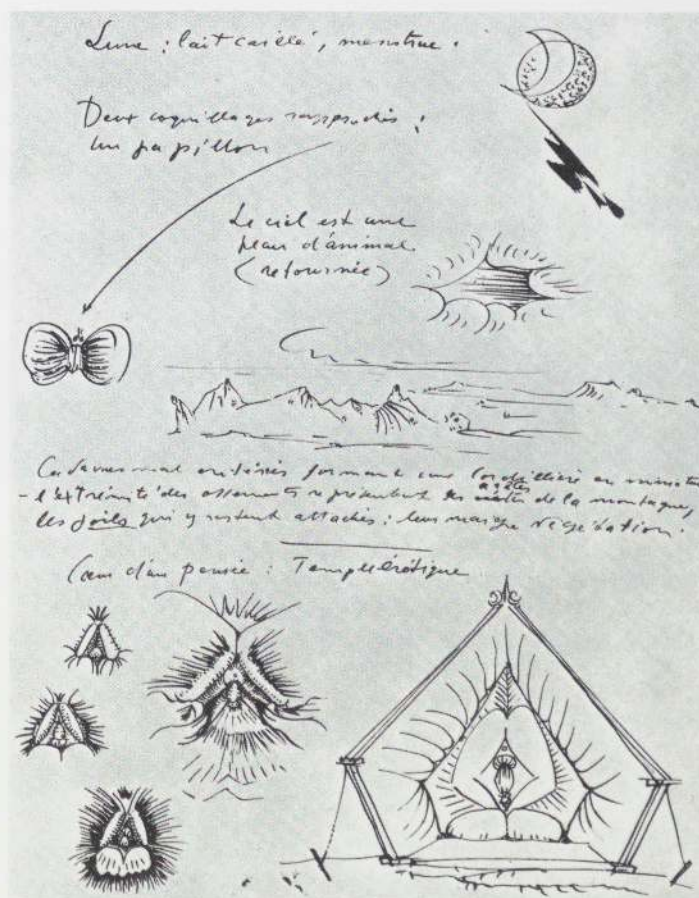 Lune : lait caillé, menstrue.
Deux coquillages rapprochés :
un papillon
Le ciel est une
peau d'animal
(retournée)
Cadavres mal enterrés formant une Cordillière en miniature
- l'extrémité des ossements représentent les arêtes de la montagne,
les poils qui y restent attachés : leur maigre végétation.
Cœur d'une pensée : Temple érotique